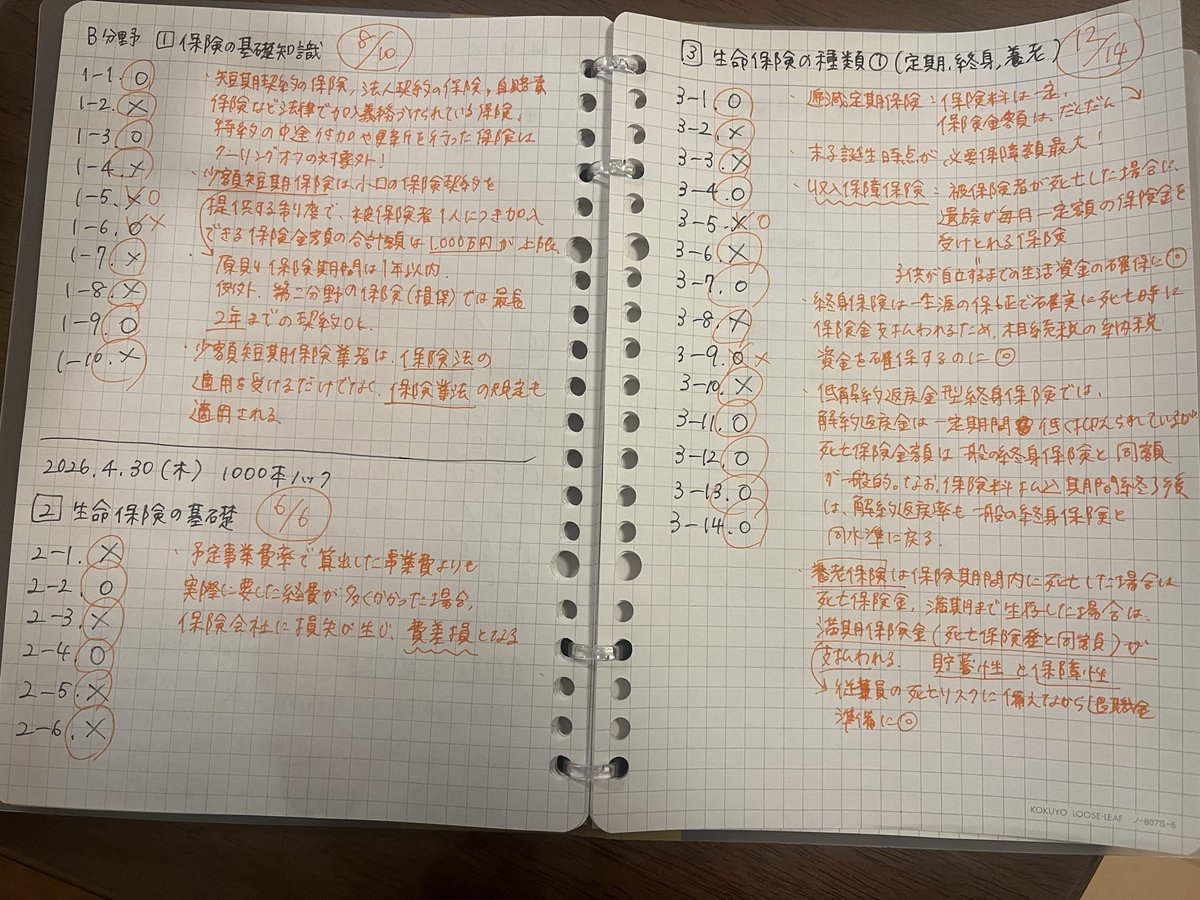 B分野 1 保険の基礎知識 8/10
1-1. O
1-2. ×
1-3 O
1-4. ×
1-5. × O
1-6. O ×
1-7. ×
1-8. ×
1-9. O
1-10. ×
・短期契約の保険、法人契約の保険、自賠責
保険など法律で加入義務づけられている保険、
特約の中途付加や更新を行った保険は
クーリングオフの対象外!
・少額短期保険は、小口の保険契約を
提供する制度で、被保険者1人につき加入
できる保険金額の合計額は1,000万円が上限、
原則 保険期間は1年以内、
例外、第二分野の保険(損保)では最長
2年までの契約OK.
・少額短期保険業者は、保険法の
適用を受けるだけでなく、保険業法の規定も
適用される
2026.4.30(木) 1000本ノック
2 生命保険の基礎 6/6
2-1. ×
2-2. O
2-3. ×
2-4. O
2-5. ×
2-6. ×
・予定事業費率で算出した事業費よりも
実際に要した経費が多くかかった場合、
保険会社に損失が生じ、費差損となる
3 生命保険の種類①(定期、終身、養老) 12/14
3-1. O
3-2. ×
3-3. ×
3-4. O
3-5. × O
3-6. ×
3-7. O
3-8. ×
3-9. O ×
3-10. ×
3-11. O
3-12. O
3-13. O
3-14. O
・逓減定期保険:保険料は一定、
保険金額は、だんだん↘
・末子誕生時点が、必要保障額最大!
・収入保障保険:被保険者が死亡した場合に、
遺族が毎月一定額の保険金を
受けとれる保険
子供が自立するまでの生活資金の確保に◎
・終身保険は一生涯の保証で確実に死亡時に
保険金支払われるため、相続税の納税
資金を確保するのに◎
・低解約返戻金型終身保険では、
解約返戻金は一定期間 低く抑えられているが
死亡保険金額は一般の終身保険と同額
が一般的。なお、保険料払込期間終了後
は、解約返戻率も一般の終身保険と
同水準に戻る.
・養老保険は保険期間内に死亡した場合は
死亡保険金、満期まで生存した場合は、
満期保険金(死亡保険金と同額)が
支払われる. 貯蓄性と保障性
→従業員の死亡リスクに備えながら退職金
準備に◎
KOKUYO LOOSE-LEAF ノ-807S-5